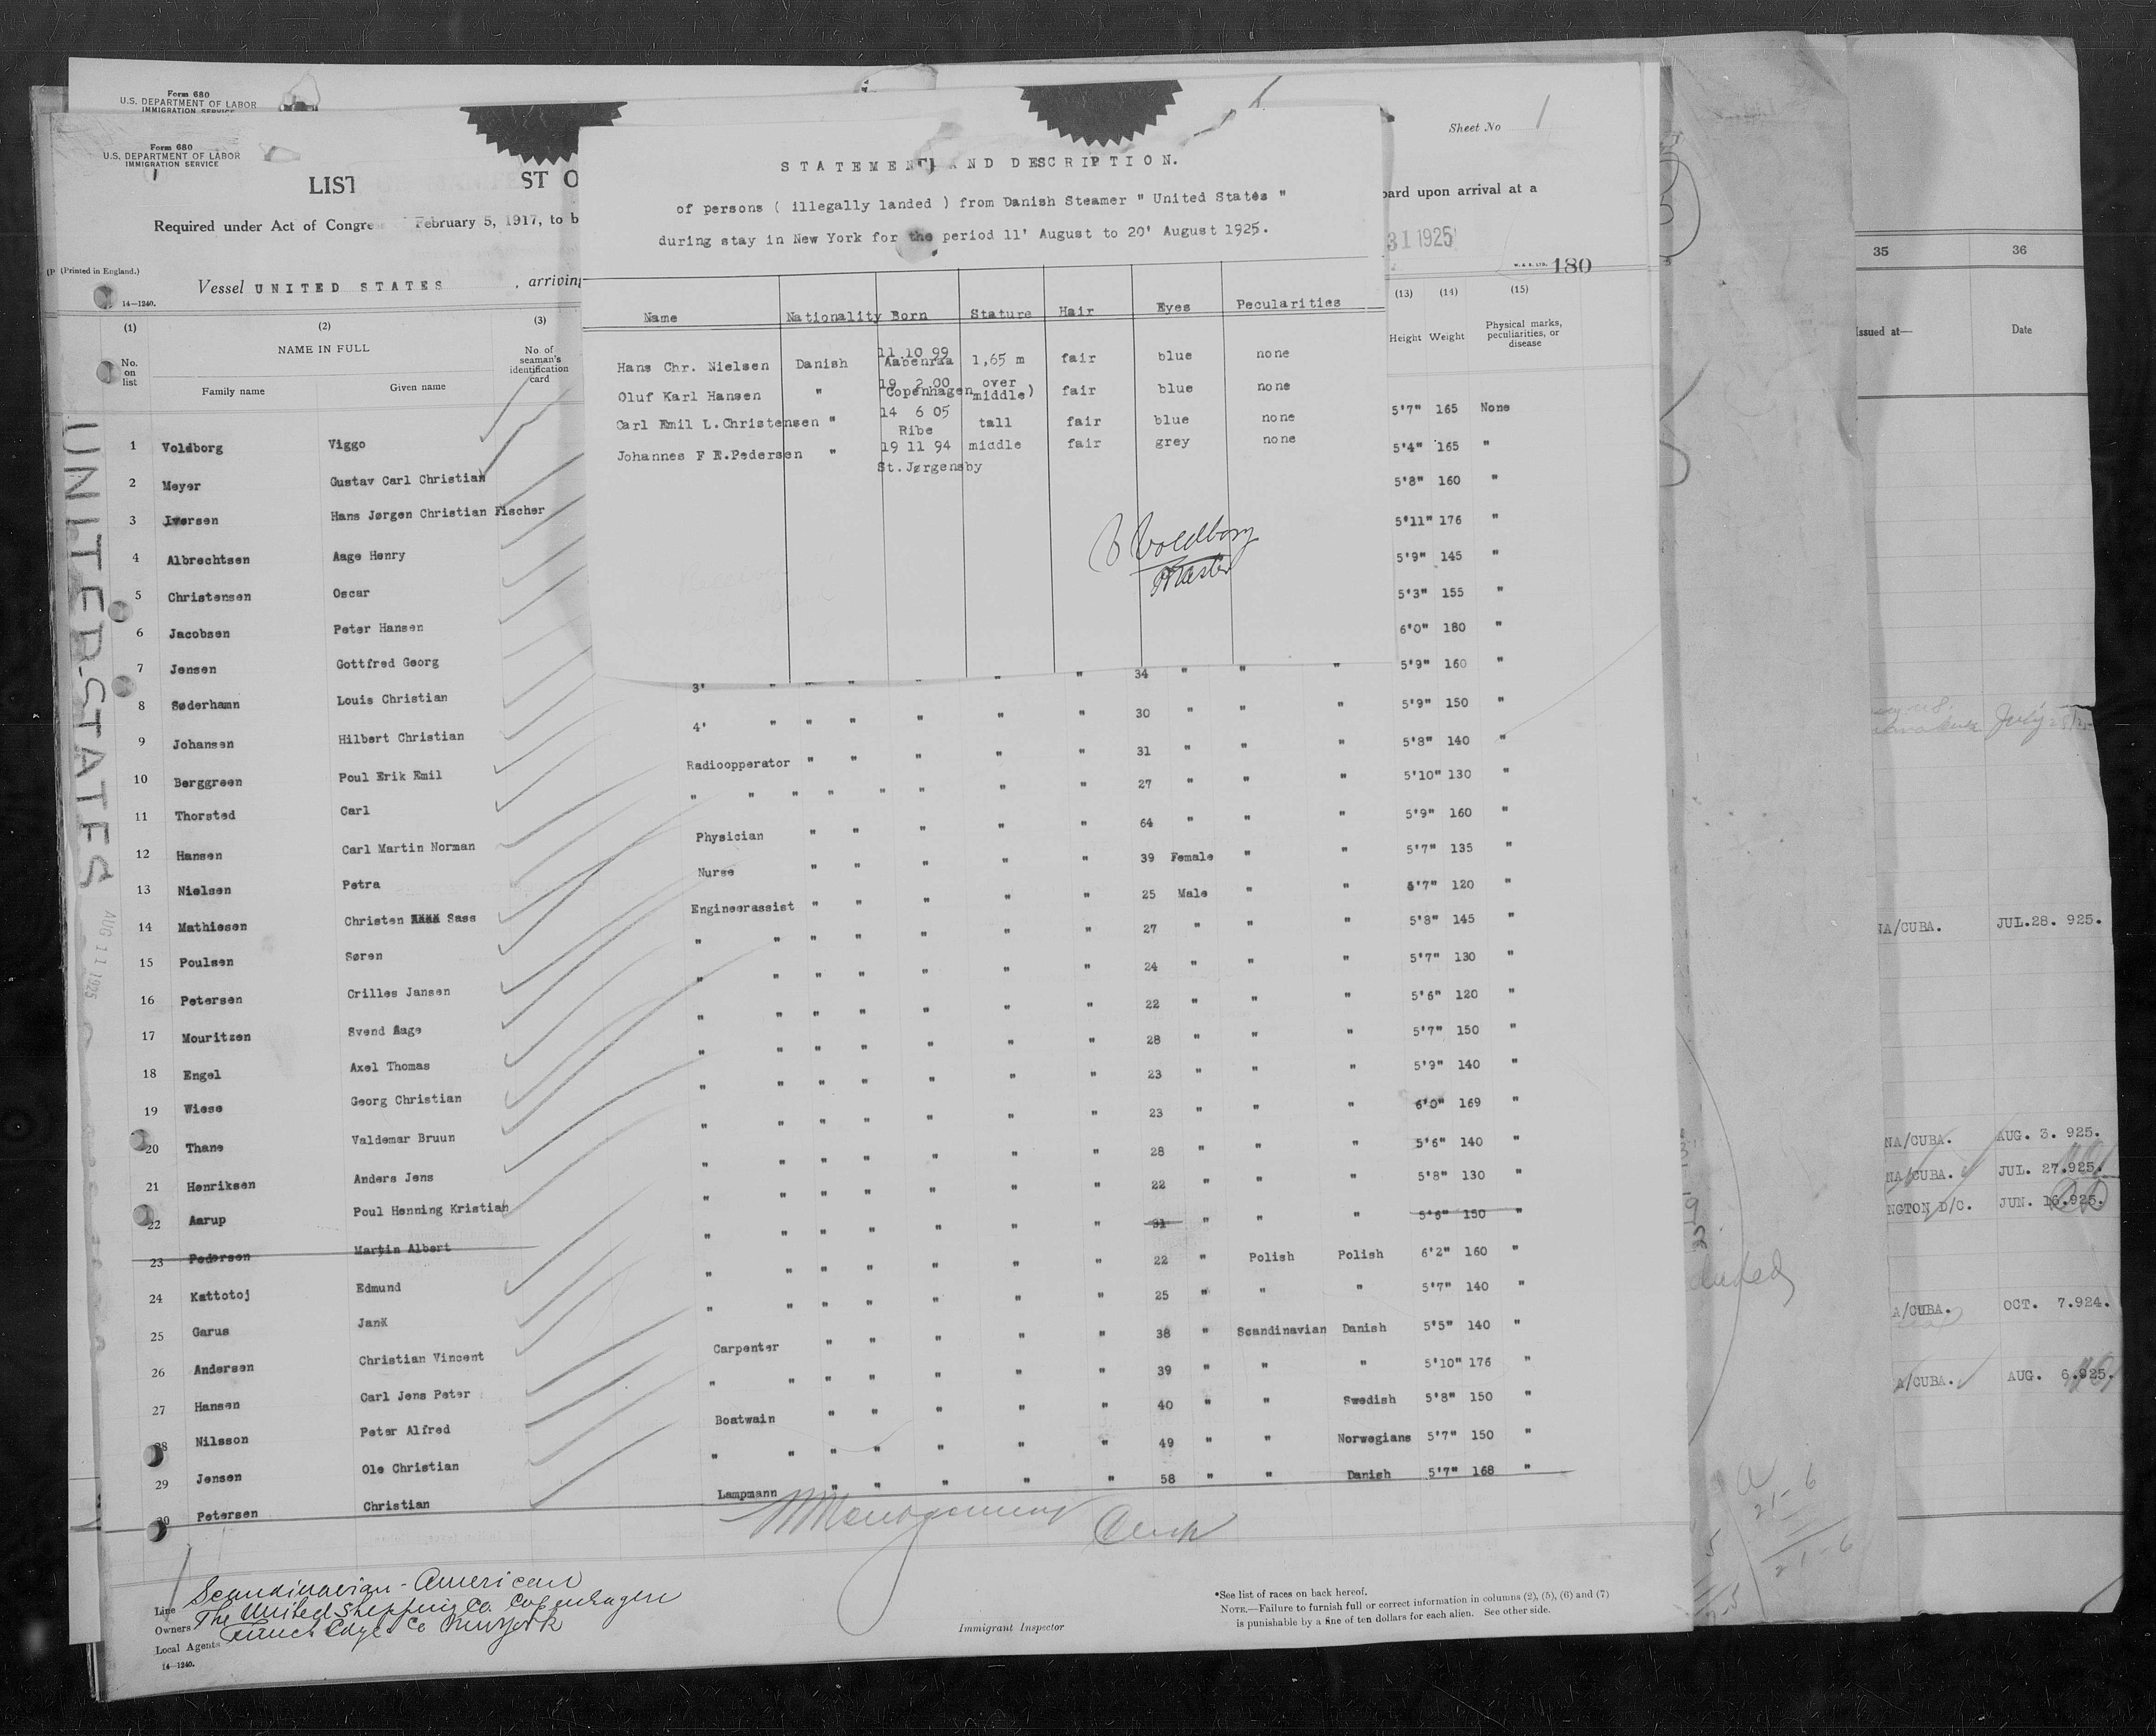 Form 680
U.S. DEPARTMENT OF LABOR
IMMIGRATION SERVICE
Form 680
U.S. DEPARTMENT OF LABOR
IMMIGRATION SERVICE
Sheet No 1
LIST ST O
Required under Act of Congre February 5, 1917, to b
oard upon arrival at a
31 1925
(Printed in England.)
Vessel UNITED STATES , arriving
14—1240.
180
STATEMENT AND DESCRIPTION.
of persons ( illegally landed ) from Danish Steamer " United States "
during stay in New York for the period 11' August to 20' August 1925.
Name Nationality Born Stature Hair Eyes Pecularities
Hans Chr. Nielsen Danish 11 10 99 Aabenraa 1,65 m fair blue none
Oluf Karl Hansen " 19 2 00 Copenhagen over middle) fair blue none
Carl Emil L.Christensen " 14 6 05 Ribe tall fair blue none
Johannes F E.Pedersen " 19 11 94 St.Jørgensby middle fair grey none
V Voldborg
Master
(1) (2) (3) (13) (14) (15)
No. on list NAME IN FULL No. of seaman's identification card Height Weight Physical marks, peculiarities, or disease
Family name Given name
1 Voldborg Viggo 5'7" 165 None
2 Meyer Gustav Carl Christian 5'4" 165 "
3 Iversen Hans Jørgen Christian Fischer 5'8" 160 "
4 Albrechtsen Aage Henry 5'11" 176 "
5 Christensen Oscar 5'9" 145 "
6 Jacobsen Peter Hansen 5'3" 155 "
7 Jensen Gottfred Georg 6'0" 180 "
8 Søderhamn Louis Christian 3' " " " " " " 34 " " " 5'9" 160 "
9 Johansen Hilbert Christian 4' " " " " " " 30 " " " 5'9" 150 "
10 Berggreen Poul Erik Emil Radioopperator " " " " " 31 " " " 5'8" 140 "
11 Thorsted Carl " " " " " " " " 27 " " " 5'10" 130 "
12 Hansen Carl Martin Norman Physician " " " " " 64 " " " 5'9" 160 "
13 Nielsen Petra Nurse " " " " " 39 Female " " 5'7" 135 "
14 Mathiesen Christen Sass Engineerassist " " " " " 25 Male " " 5'7" 120 "
15 Poulsen Søren " " " " " " " 27 " " " 5'8" 145 "
16 Petersen Crilles Jansen " " " " " " " 24 " " " 5'7" 130 "
17 Mouritzen Svend Aage " " " " " " " 22 " " " 5'6" 120 "
18 Engel Axel Thomas " " " " " " " 28 " " " 5'7" 150 "
19 Wiese Georg Christian " " " " " " " 23 " " " 5'9" 140 "
20 Thane Valdemar Bruun " " " " " " " 23 " " " 6'0" 169 "
21 Henriksen Anders Jens " " " " " " " 28 " " " 5'6" 140 "
22 Aarup Poul Henning Kristian " " " " " " " 22 " " " 5'8" 130 "
23 Pedersen Martin Albert " " " " " " " 31 " " " 5'6" 150 "
24 Kattotoj Edmund " " " " " " " 22 " Polish Polish 6'2" 160 "
25 Garus Jank " " " " " " " 25 " " " 5'7" 140 "
26 Andersen Christian Vincent Carpenter " " " " " 38 " Scandinavian Danish 5'5" 140 "
27 Hansen Carl Jens Peter " " " " " " " 39 " " " 5'10" 176 "
28 Nilsson Peter Alfred Boatwain " " " " " 40 " " Swedish 5'8" 150 "
29 Jensen Ole Christian " " " " " " " 49 " " Norwegians 5'7" 150 "
30 Petersen Christian Lampmann " " " " " 58 " " Danish 5'7" 168 "
UNITED STATES
AUG 11 1925
Montgomery
Line Scandinavian-American
Owners The United Shipping Co. Copenhagen
Local Agents Funch Edye & Co New York
14—1240.
Immigrant Inspector
*See list of races on back hereof.
NOTE.—Failure to furnish full or correct information in columns (2), (5), (6) and (7)
is punishable by a fine of ten dollars for each alien. See other side.
35 36
Issued at— Date
July 28/25
NA/CUBA. JUL.28. 925.
NA/CUBA. AUG. 3. 925.
NA/CUBA. JUL. 27.925.
NGTON D/C. JUN. 16.925.
A/CUBA. OCT. 7.924.
A/CUBA. AUG. 6.925.
21-6
21-6